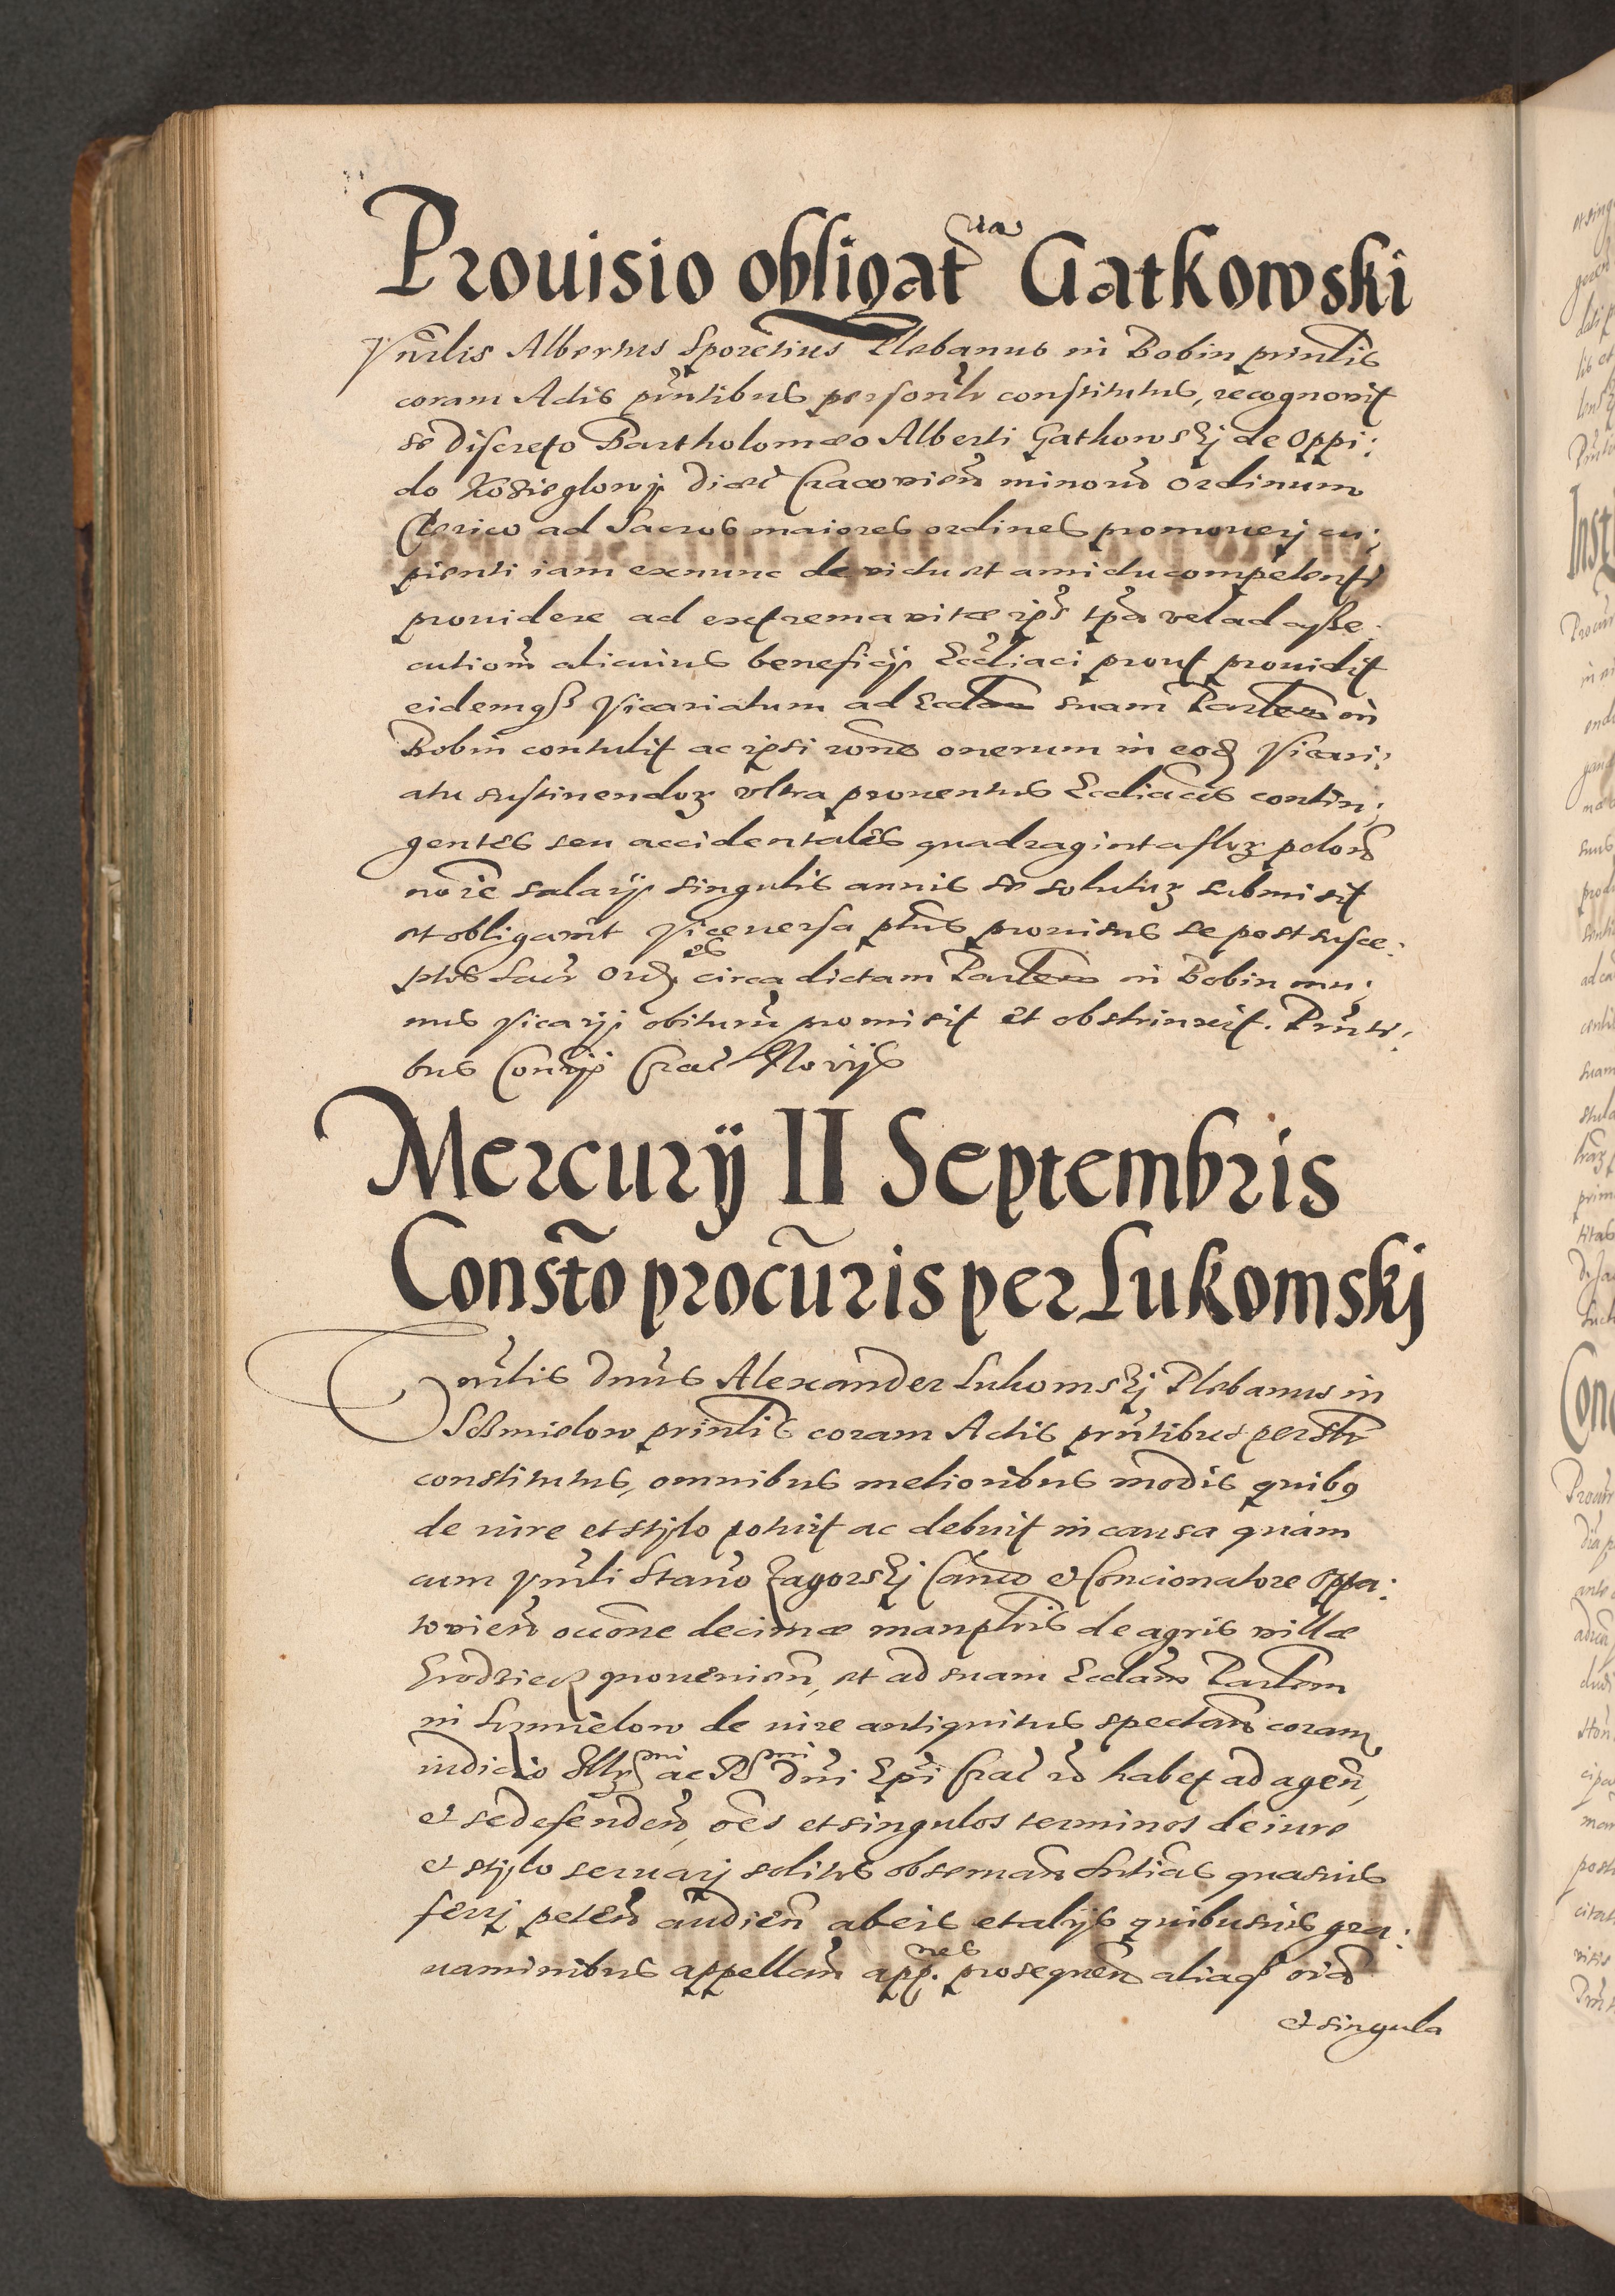 Prouisio obligatria Gatkowski
Vnrlis Albertus Sporetius Plebanus in Bobin prinlis
coram Actis prntibus personlr constitutus, recognouit
se discreto Bartholomæo Alberti Gatkowskj de Oppi:
do Kosieglowÿ diæc Cracouien minoru ordinum
Clerico ad Sacros maiores ordines promouerj cu:
pienti iam exnunc de victu et amictu competenti
prouidere ad extrema vitæ ips tpa vel ad asse:
cutiom alicuius beneficÿ Eccliaci prout prouidit
eidemqz Vicariatum ad Eccliam suam Parlem in
Bobin contulit ac ipsi rone onerum in eod Vicari:
atu sustinendoz vltra prouentus Eccliacos contin:
gentes seu accidentales quadraginta floz polon
noie salarÿ singulis annis se soluturz submisit
et obligauit Viceuersa ptus prouisus se post susce:
ptos sacr Ord es circa dictam Parlem in Bobin mu:
nus vicarÿ obiturum promisit et obstrinxit. Prnti:
bus Consÿ Crac Norÿs
Mercurÿ II Septembris
Consto procuris per Lukomskj
Vnrlis Dnus Alexander Lukomskj Plebanus in
prinlis coram Actis prntibus perslr
constitutus, omnibus melioribus modis quib9
de iure et stÿlo potuit ac debuit in causa quam
cum Vnrli Stano Zagorskj Canco et Concionatore Oppa:
touien occone decimæ manplris de agris villæ
prouenien, et ad suam Eccliam Parlem
in de iure antiquitus spectan coram
iudicio Illr mi ac R mi Dni Epi Crac rd habet ad agen,
et se defenden, oes et singulos terminos de iure
et stÿlo seruarj solitos obseruan sntias quasuis
ferrj peten audien ab eis et alÿs quibusuis gra:
uaminibus appellan app. nes prosequen aliaqz oia
et singula